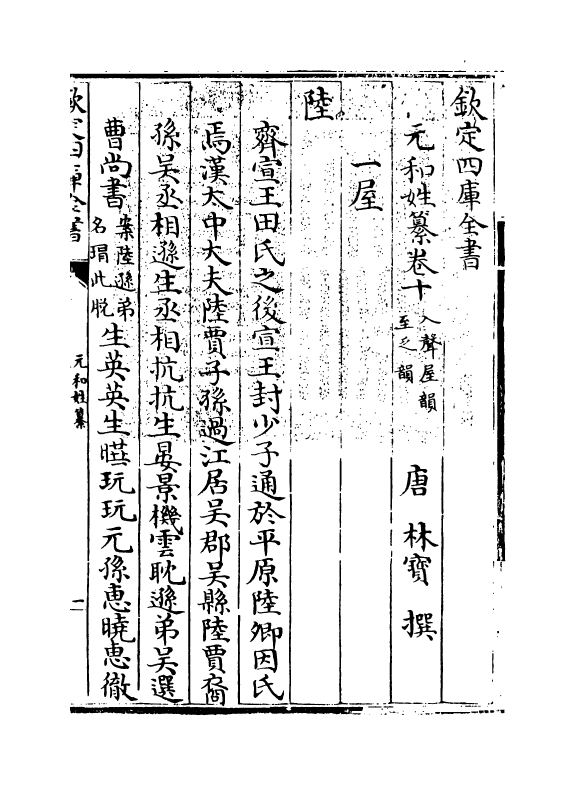 欽定四庫全書
元和姓纂卷十 入聲屋韻
至乏韻
唐 林寶 撰
一屋
陸
齊宣王田氏之後宣王封少子通於平原陸鄉因氏
焉漢太中大夫陸賈子孫過江居吳郡吳縣陸賈裔
孫吳丞相遜生丞相抗抗生晏景機雲耽遜弟吳選
曹尚書 案陸遜弟
名瑁此脫
生英英生曄玩玩元孫恵曉恵徹
欽定四庫全書
元和姓纂